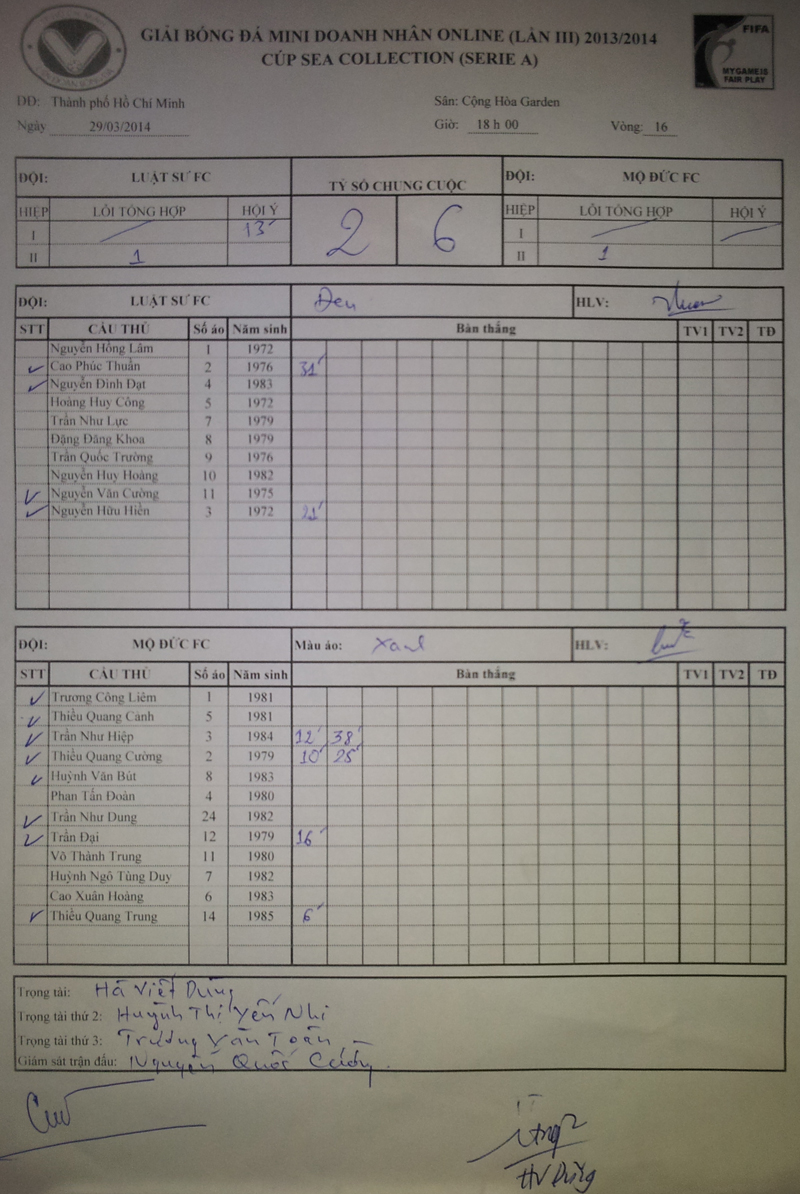 GIẢI BÓNG ĐÁ MINI DOANH NHÂN ONLINE (LẦN III) 2013/2014
CÚP SEA COLLECTION (SERIE A)
FIFA
MYGAMEIS
FAIR PLAY
DĐ: Thành phố Hồ Chí Minh
Sân: Cộng Hòa Garden
Ngày 29/03/2014
Giờ: 18 h 00
Vòng: 16
ĐỘI: LUẬT SƯ FC
TỶ SỐ CHUNG CUỘC
ĐỘI: MỘ ĐỨC FC
HIỆP LỖI TỔNG HỢP HỘI Ý
2 6
HIỆP LỖI TỔNG HỢP HỘI Ý
I 13'
I
II 1
II 1
ĐỘI: LUẬT SƯ FC Đen HLV:
STT CẦU THỦ Số áo Năm sinh Bàn thắng TV1 TV2 TĐ
Nguyễn Hồng Lâm 1 1972
Cao Phúc Thuần 2 1976 31'
Nguyễn Đình Đạt 4 1983
Hoàng Huy Công 5 1972
Trần Như Lực 7 1979
Đặng Đăng Khoa 8 1979
Trần Quốc Trường 9 1976
Nguyễn Huy Hoàng 10 1982
Nguyễn Văn Cường 11 1975
Nguyễn Hữu Hiền 3 1972 21'
ĐỘI: MỘ ĐỨC FC Màu áo: Xanh HLV:
STT CẦU THỦ Số áo Năm sinh Bàn thắng TV1 TV2 TĐ
Trương Công Liêm 1 1981
Thiều Quang Cảnh 5 1981
Trần Như Hiệp 3 1984 12' 38'
Thiều Quang Cường 2 1979 10' 25'
Huỳnh Văn Bút 8 1983
Phan Tấn Đoàn 4 1980
Trần Như Dung 24 1982
Trần Đại 12 1979 16'
Võ Thành Trung 11 1980
Huỳnh Ngô Tùng Duy 7 1982
Cao Xuân Hoàng 6 1983
Thiều Quang Trung 14 1985 6'
Trọng tài: Hà Việt Dũng
Trọng tài thứ 2: Huỳnh Thị Yến Nhi
Trọng tài thứ 3: Trương Văn Toản
Giám sát trận đấu: Nguyễn Quốc Cường
HV Dũng